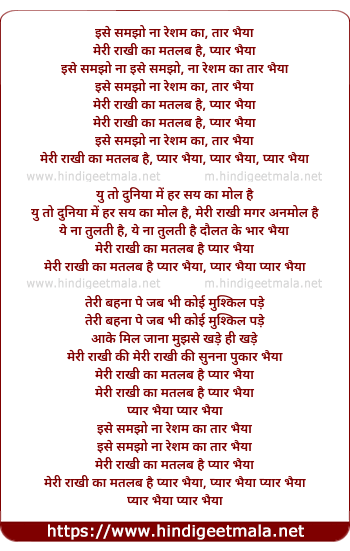 इसे समझो ना रेशम का, तार भैया
मेरी राखी का मतलब है, प्यार भैया
इसे समझो ना इसे समझो, ना रेशम का तार भैया
इसे समझो ना रेशम का, तार भैया
मेरी राखी का मतलब है, प्यार भैया
मेरी राखी का मतलब है, प्यार भैया
इसे समझो ना रेशम का, तार भैया
मेरी राखी का मतलब है, प्यार भैया, प्यार भैया, प्यार भैया
www.hindigeetmala.net m.hindigeetmala.net
यु तो दुनिया में हर सय का मोल है
यु तो दुनिया में हर सय का मोल है, मेरी राखी मगर अनमोल है
ये ना तुलती है, ये ना तुलती है दौलत के भार भैया
मेरी राखी का मतलब है प्यार भैया
मेरी राखी का मतलब है प्यार भैया, प्यार भैया प्यार भैया
www.hindigeetmala.net m.hindigeetmala.net
तेरी बहना पे जब भी कोई मुश्किल पड़े
तेरी बहना पे जब भी कोई मुश्किल पड़े
आके मिल जाना मुझसे खड़े ही खड़े
मेरी राखी की मेरी राखी की सुनना पुकार भैया
मेरी राखी का मतलब है प्यार भैया
मेरी राखी का मतलब है प्यार भैया
प्यार भैया प्यार भैया
इसे समझो ना रेशम का तार भैया
इसे समझो ना रेशम का तार भैया
मेरी राखी का मतलब है प्यार भैया
मेरी राखी का मतलब है प्यार भैया, प्यार भैया प्यार भैया
प्यार भैया प्यार भैया
https://www.hindigeetmala.net